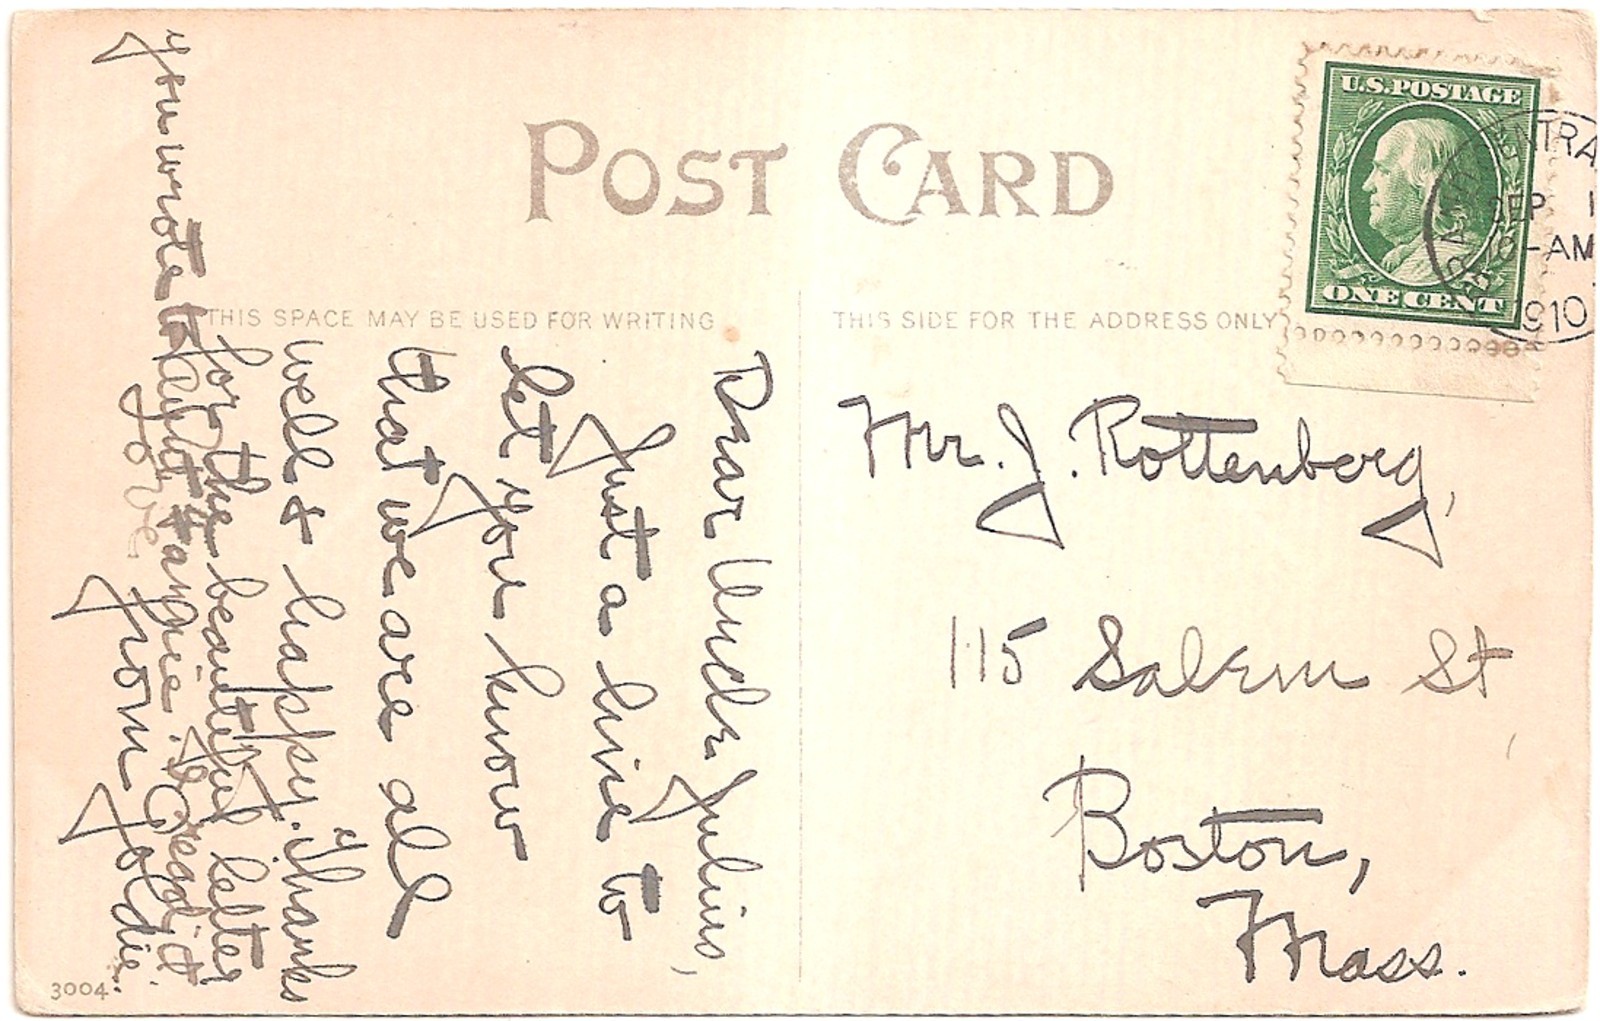 POST CARD
THIS SPACE MAY BE USED FOR WRITING
THIS SIDE FOR THE ADDRESS ONLY
U.S. POSTAGE
ONE CENT
SEP 1
-AM
1910
Dear Uncle Julius,
Just a line to
let you know
that we are all
well & happy. Thanks
for the beautiful letter
you wrote to Aunt Fannie. I read it
Love
From Goldie.
Mr. J. Rottenberg,
115 Salem St
Boston,
Mass.
3004.